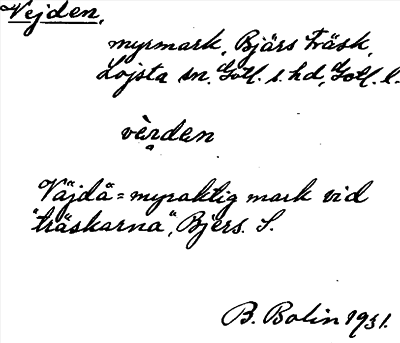 Vejden,
myrmark, Bjärs träsk,
Lojsta sn. Gotl. s. hd, Gotl. l.
vèi̯den
Väjdä = myraktig mark vid
"träskarna", Bjers. S.
B. Bolin 1931.